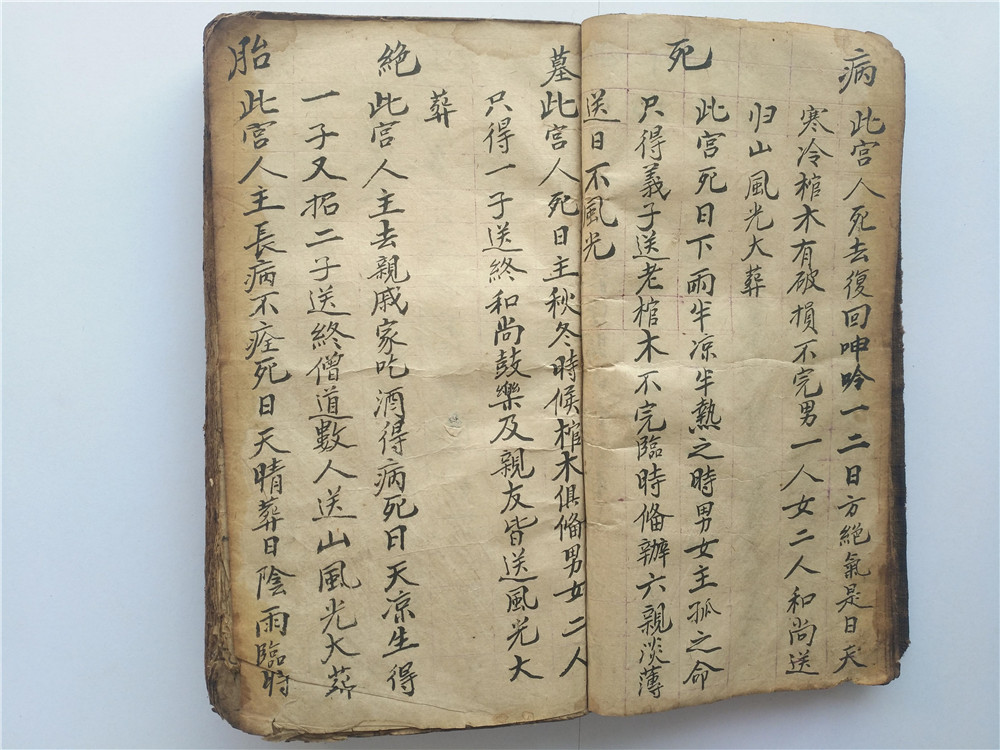 病 此宫人死去復回呻吟一二日方絶氣是日天
寒冷棺木有破損不完男一人女二人和尚送
归山風光大葬
死 此宫死日下雨半凉半熱之時男女主孤之命
只得義子送老棺木不完臨時偹辦六親淡薄
送日不風光
墓 此宫人死日主秋冬時候棺木俱偹男女二人
只得一子送終和尚鼓樂及親友皆送風光大
葬
絶 此宫人主去親戚家吃酒得病死日天凉生得
一子又招二子送終僧道數人送山風光大葬
胎 此宫人主長病不痊死日天晴葬日陰雨臨時